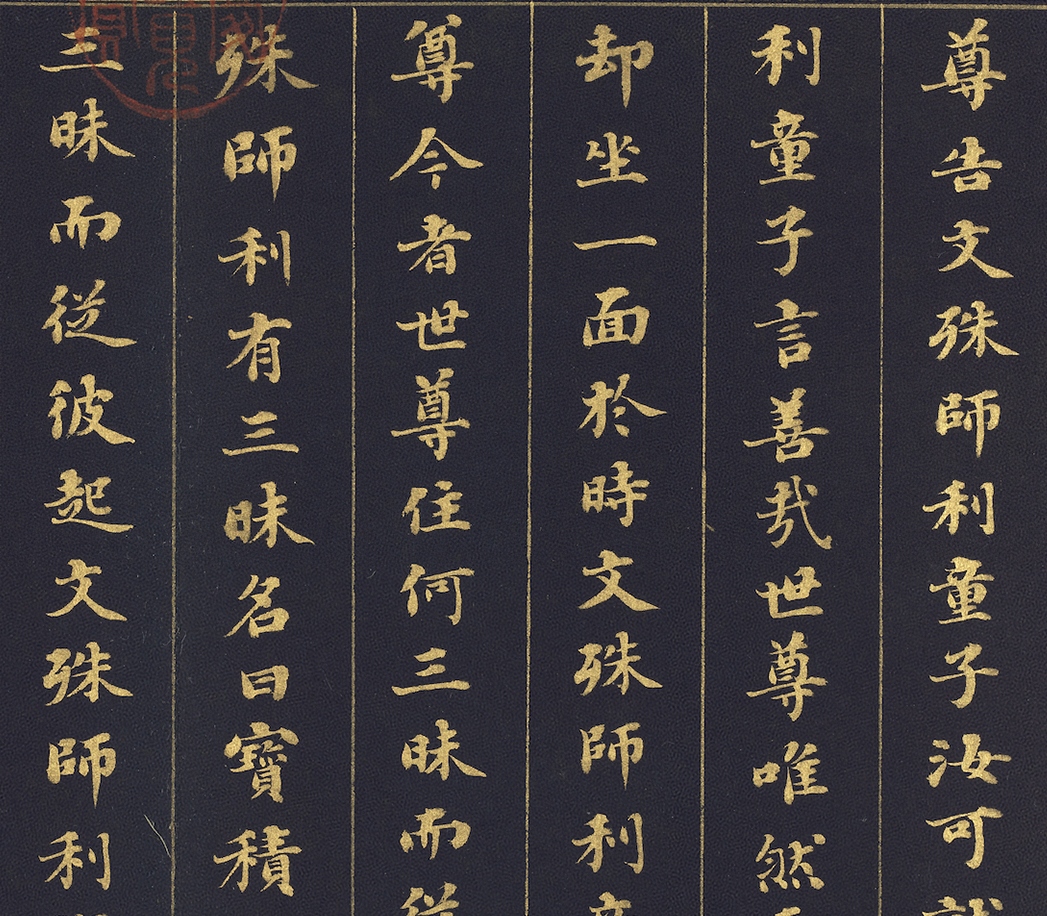 尊告文殊師利童子汝可
利童子言善哉世尊唯然
却坐一面於時文殊師利
尊今者世尊住何三昧而從
殊師利有三昧名曰寶積
三昧而從彼起文殊師利